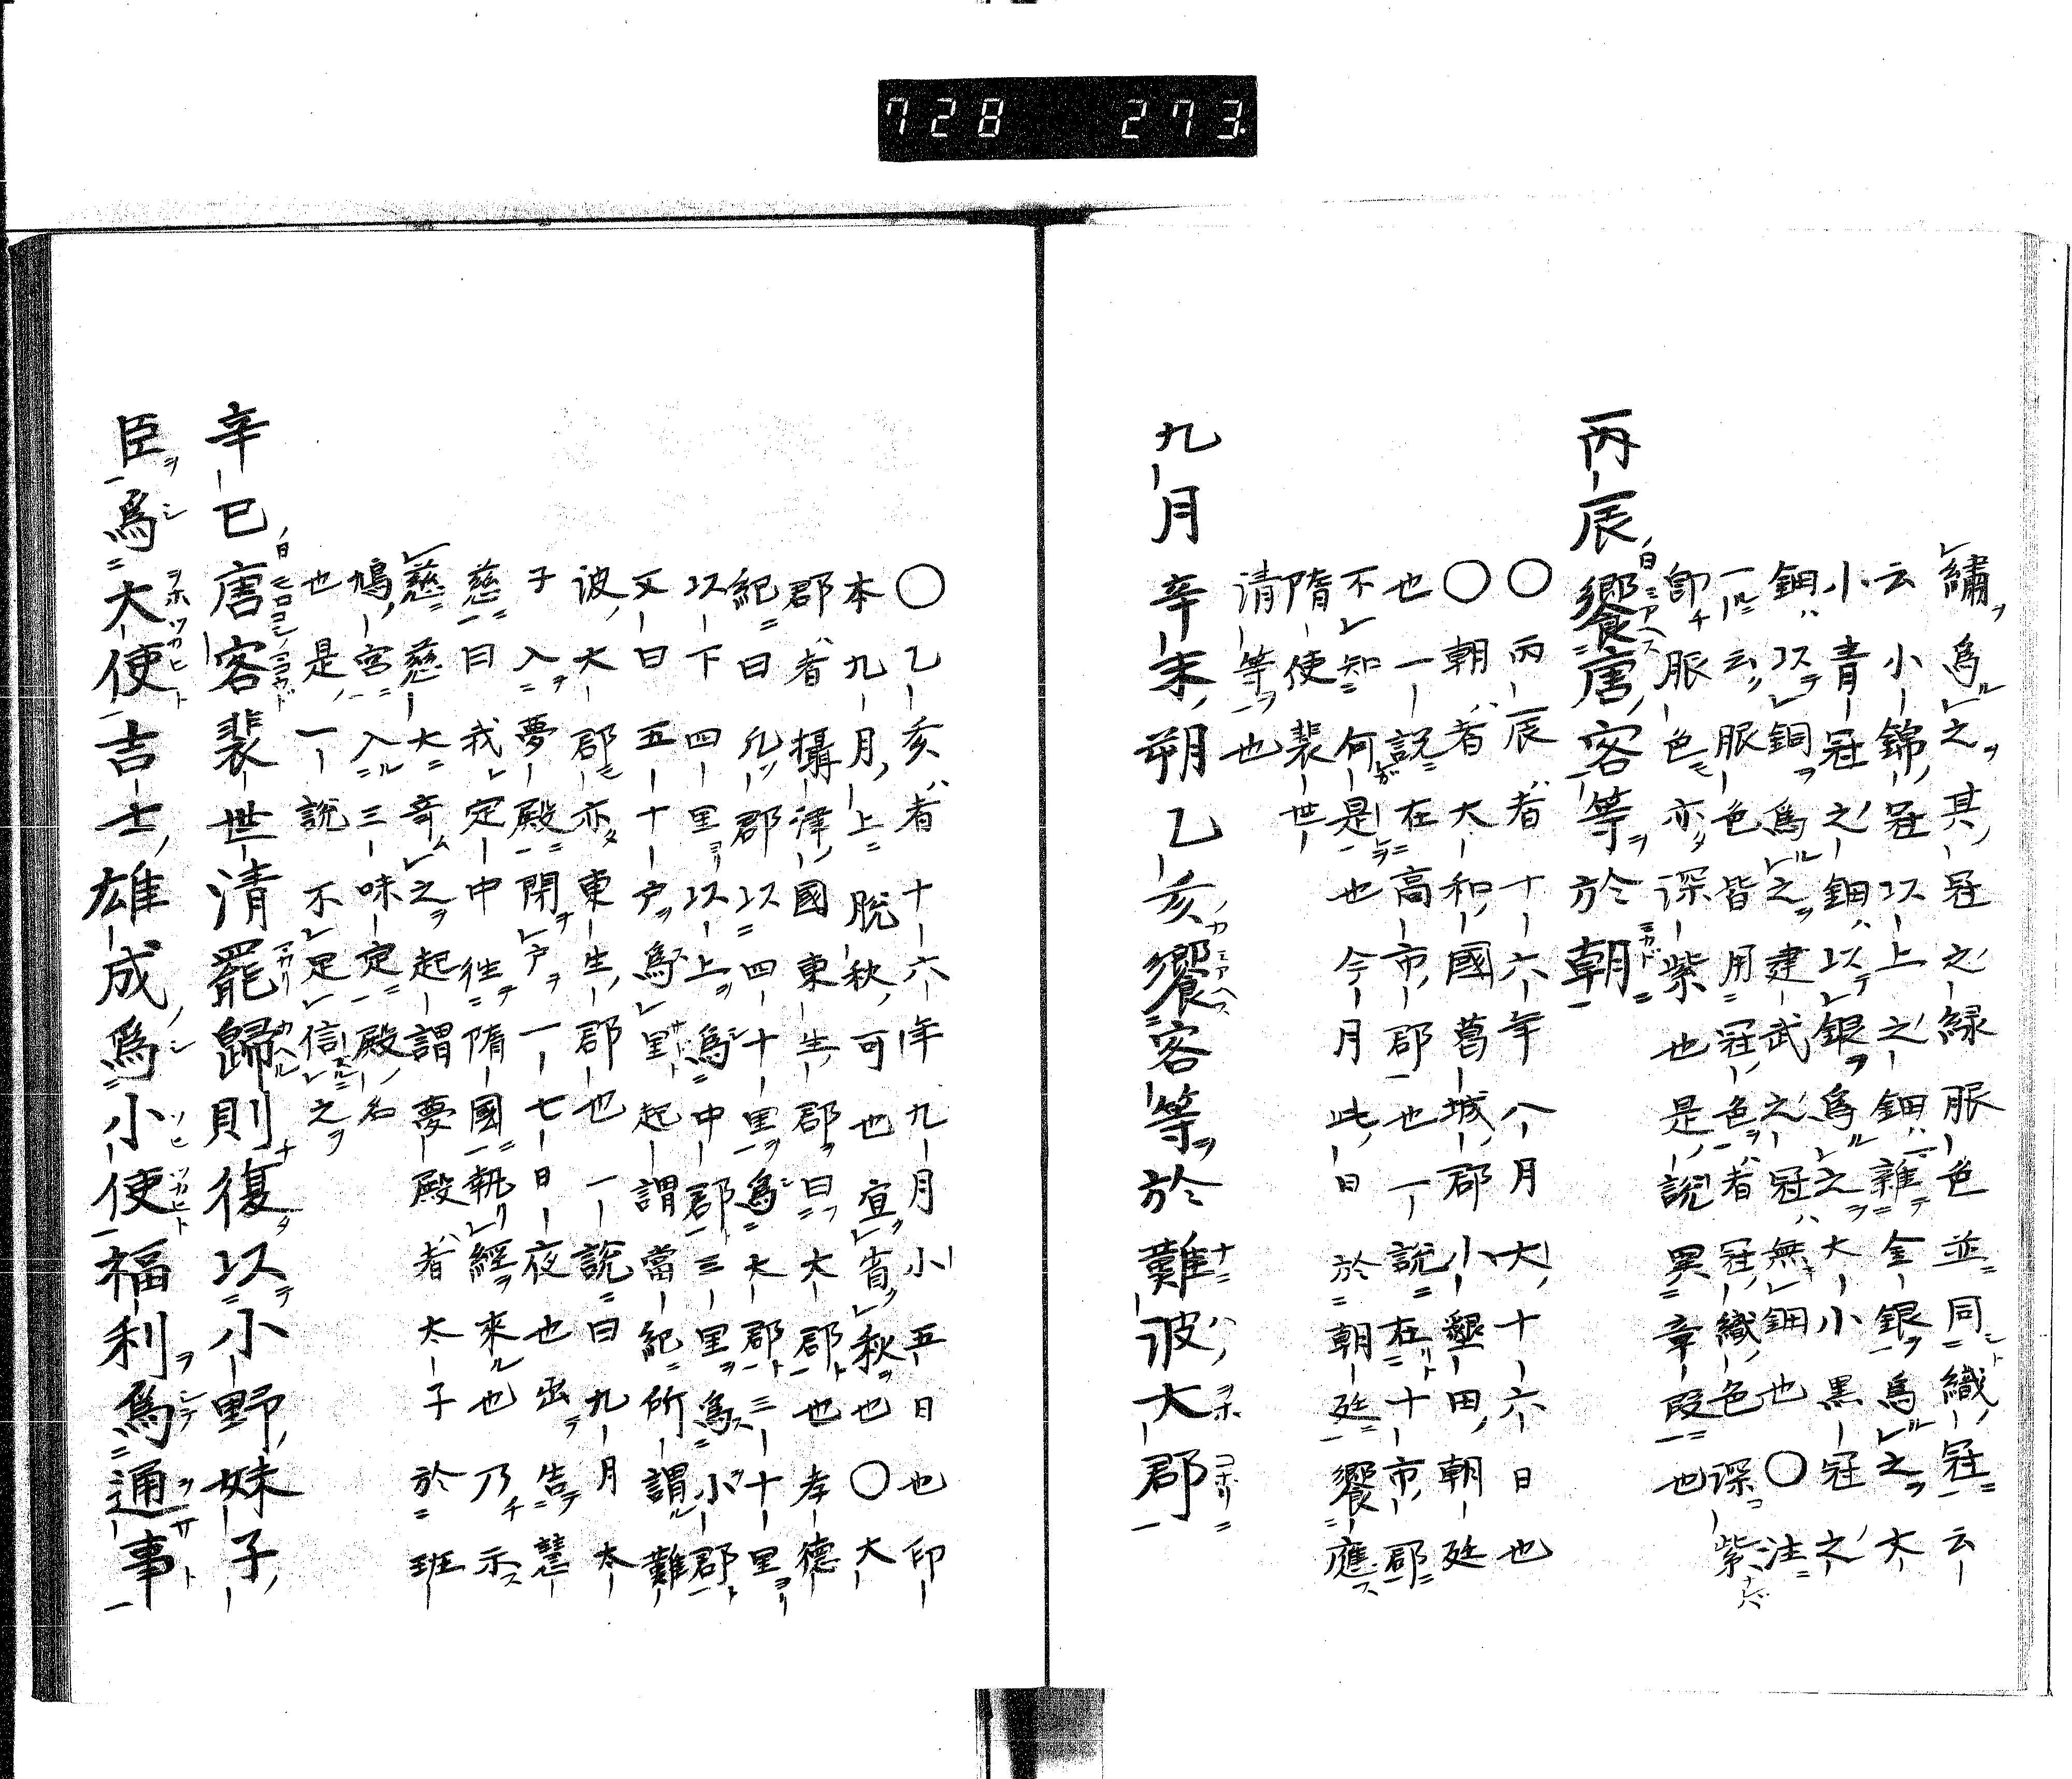 728 273
繡為之其冠之緣服色並同織冠云
云小錦冠以上之鈿雜金銀為之大
小青冠之鈿以銀為之大小黒冠之
鈿以銅為之建武之冠無鈿也〇注
一云服色皆用冠色者冠織色深紫
卽服色亦深紫也是說異章段也
丙辰饗唐客等於朝
〇丙辰者十六年八月大十六日也
〇朝者大和國葛城郡小墾田朝廷
也一說在高市郡也一說在十市郡
不知何是也今月此日於朝廷饗應
隋使裴世
清等也
九月辛未朔乙亥饗客等於難波大郡
〇乙亥者十六年九月小五日也印
本九月上脫秋可也宜省秋也〇大
郡者攝津國東生郡曰大郡也孝德
紀曰凡郡以四十里為大郡三十里
以下四里以上為中郡三里為小郡
又曰五十戶為里起謂當紀所謂難
波大郡亦東生郡也一說曰九月太
子入夢殿閉戶一七日夜也出告慧
慈曰我定中徃隋國執經來也乃示
慈慈大竒之起謂夢殿者太子於班
鳩宮入三味定殿名
也是一說不足信之
辛巳唐客裴世清罷歸則復以小野妹子
臣為大使吉士雄成為小使福利為通事